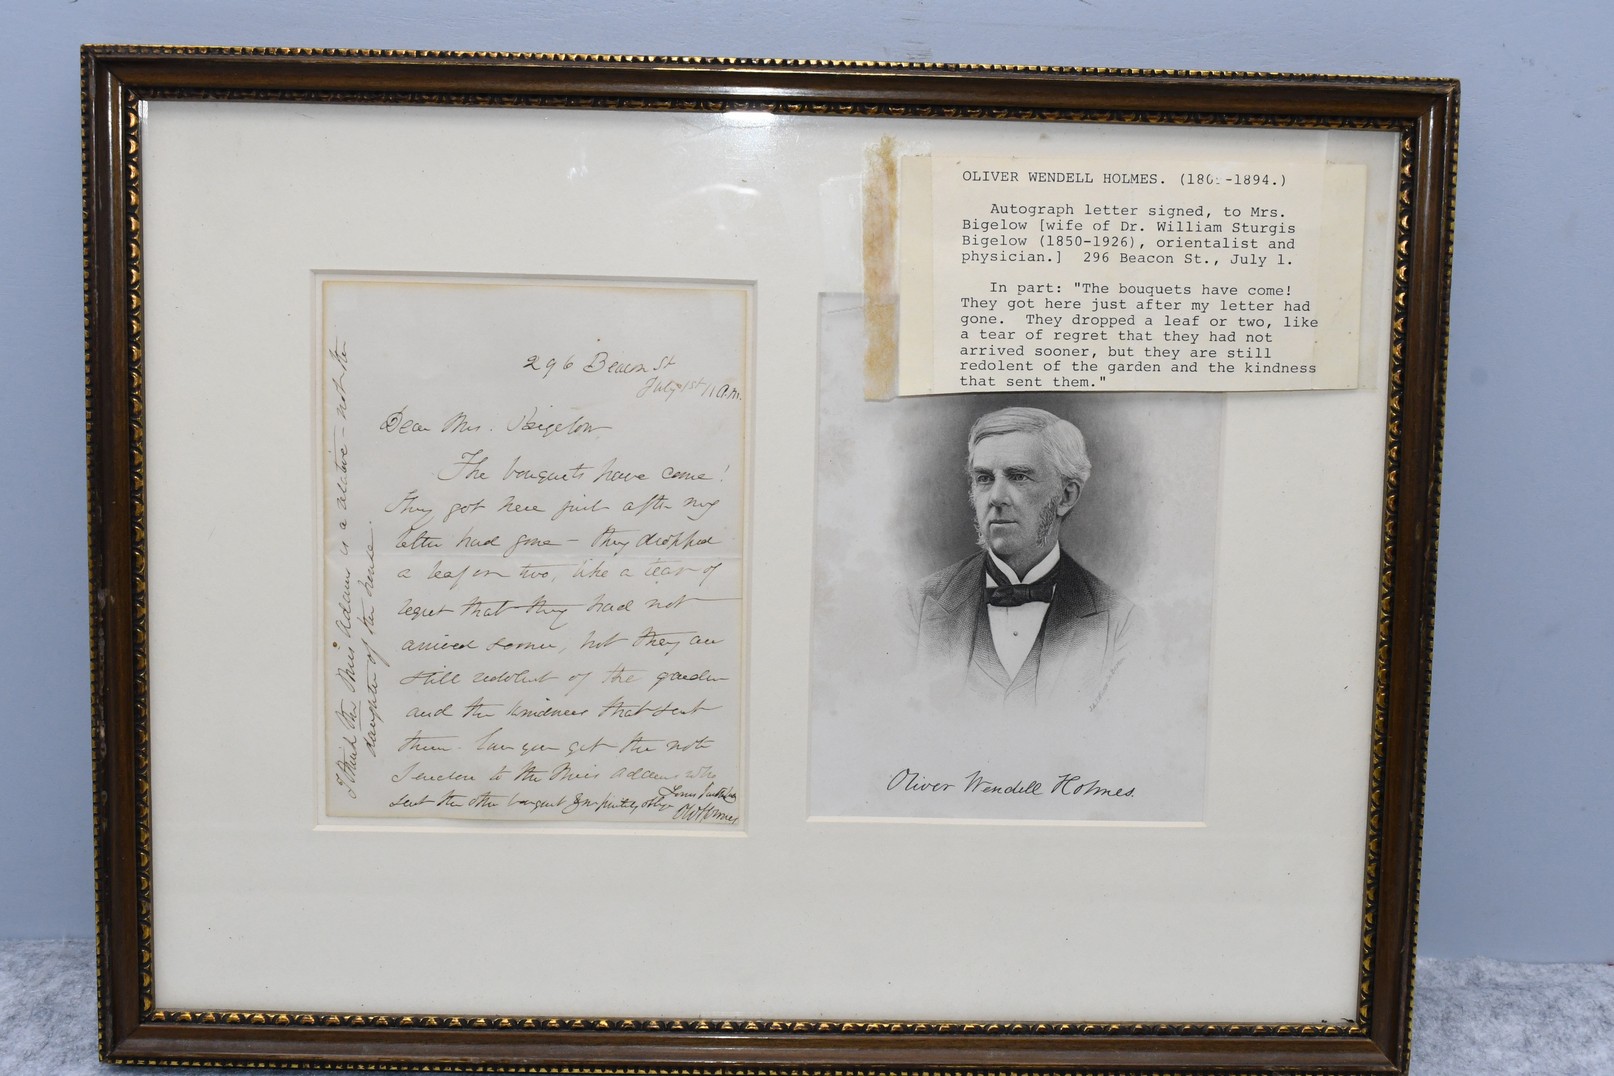 296 Beacon St
July 1st 11 A.M.
Dear Mrs. Bigelow
The bouquets have come!
They got here just after my
letter had gone – they dropped
a leaf or two, like a tear of
regret that they had not
arrived sooner, but they are
still redolent of the garden
and the kindness that sent
them. Can you get the note
I enclose to the Miss Adams who
sent the other bouquet
OWHolmes
I think this Miss Adams is a relative – not the
daughter of the house.
OLIVER WENDELL HOLMES. (180 -1894.)
Autograph letter signed, to Mrs.
Bigelow [wife of Dr. William Sturgis
Bigelow (1850-1926), orientalist and
physician.] 296 Beacon St., July 1.
In part: "The bouquets have come!
They got here just after my letter had
gone. They dropped a leaf or two, like
a tear of regret that they had not
arrived sooner, but they are still
redolent of the garden and the kindness
that sent them."
Oliver Wendell Holmes.